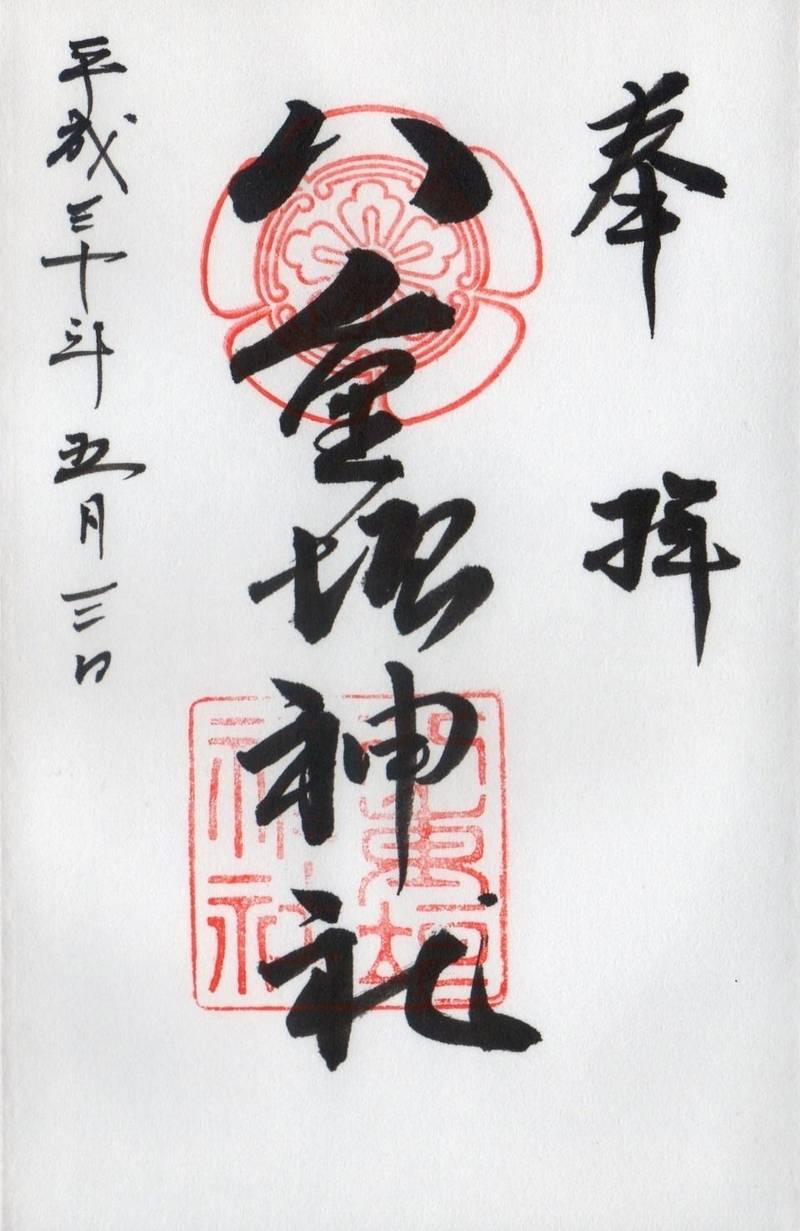 奉拝
八重垣神社
八重垣
神社
平成三十年五月三日